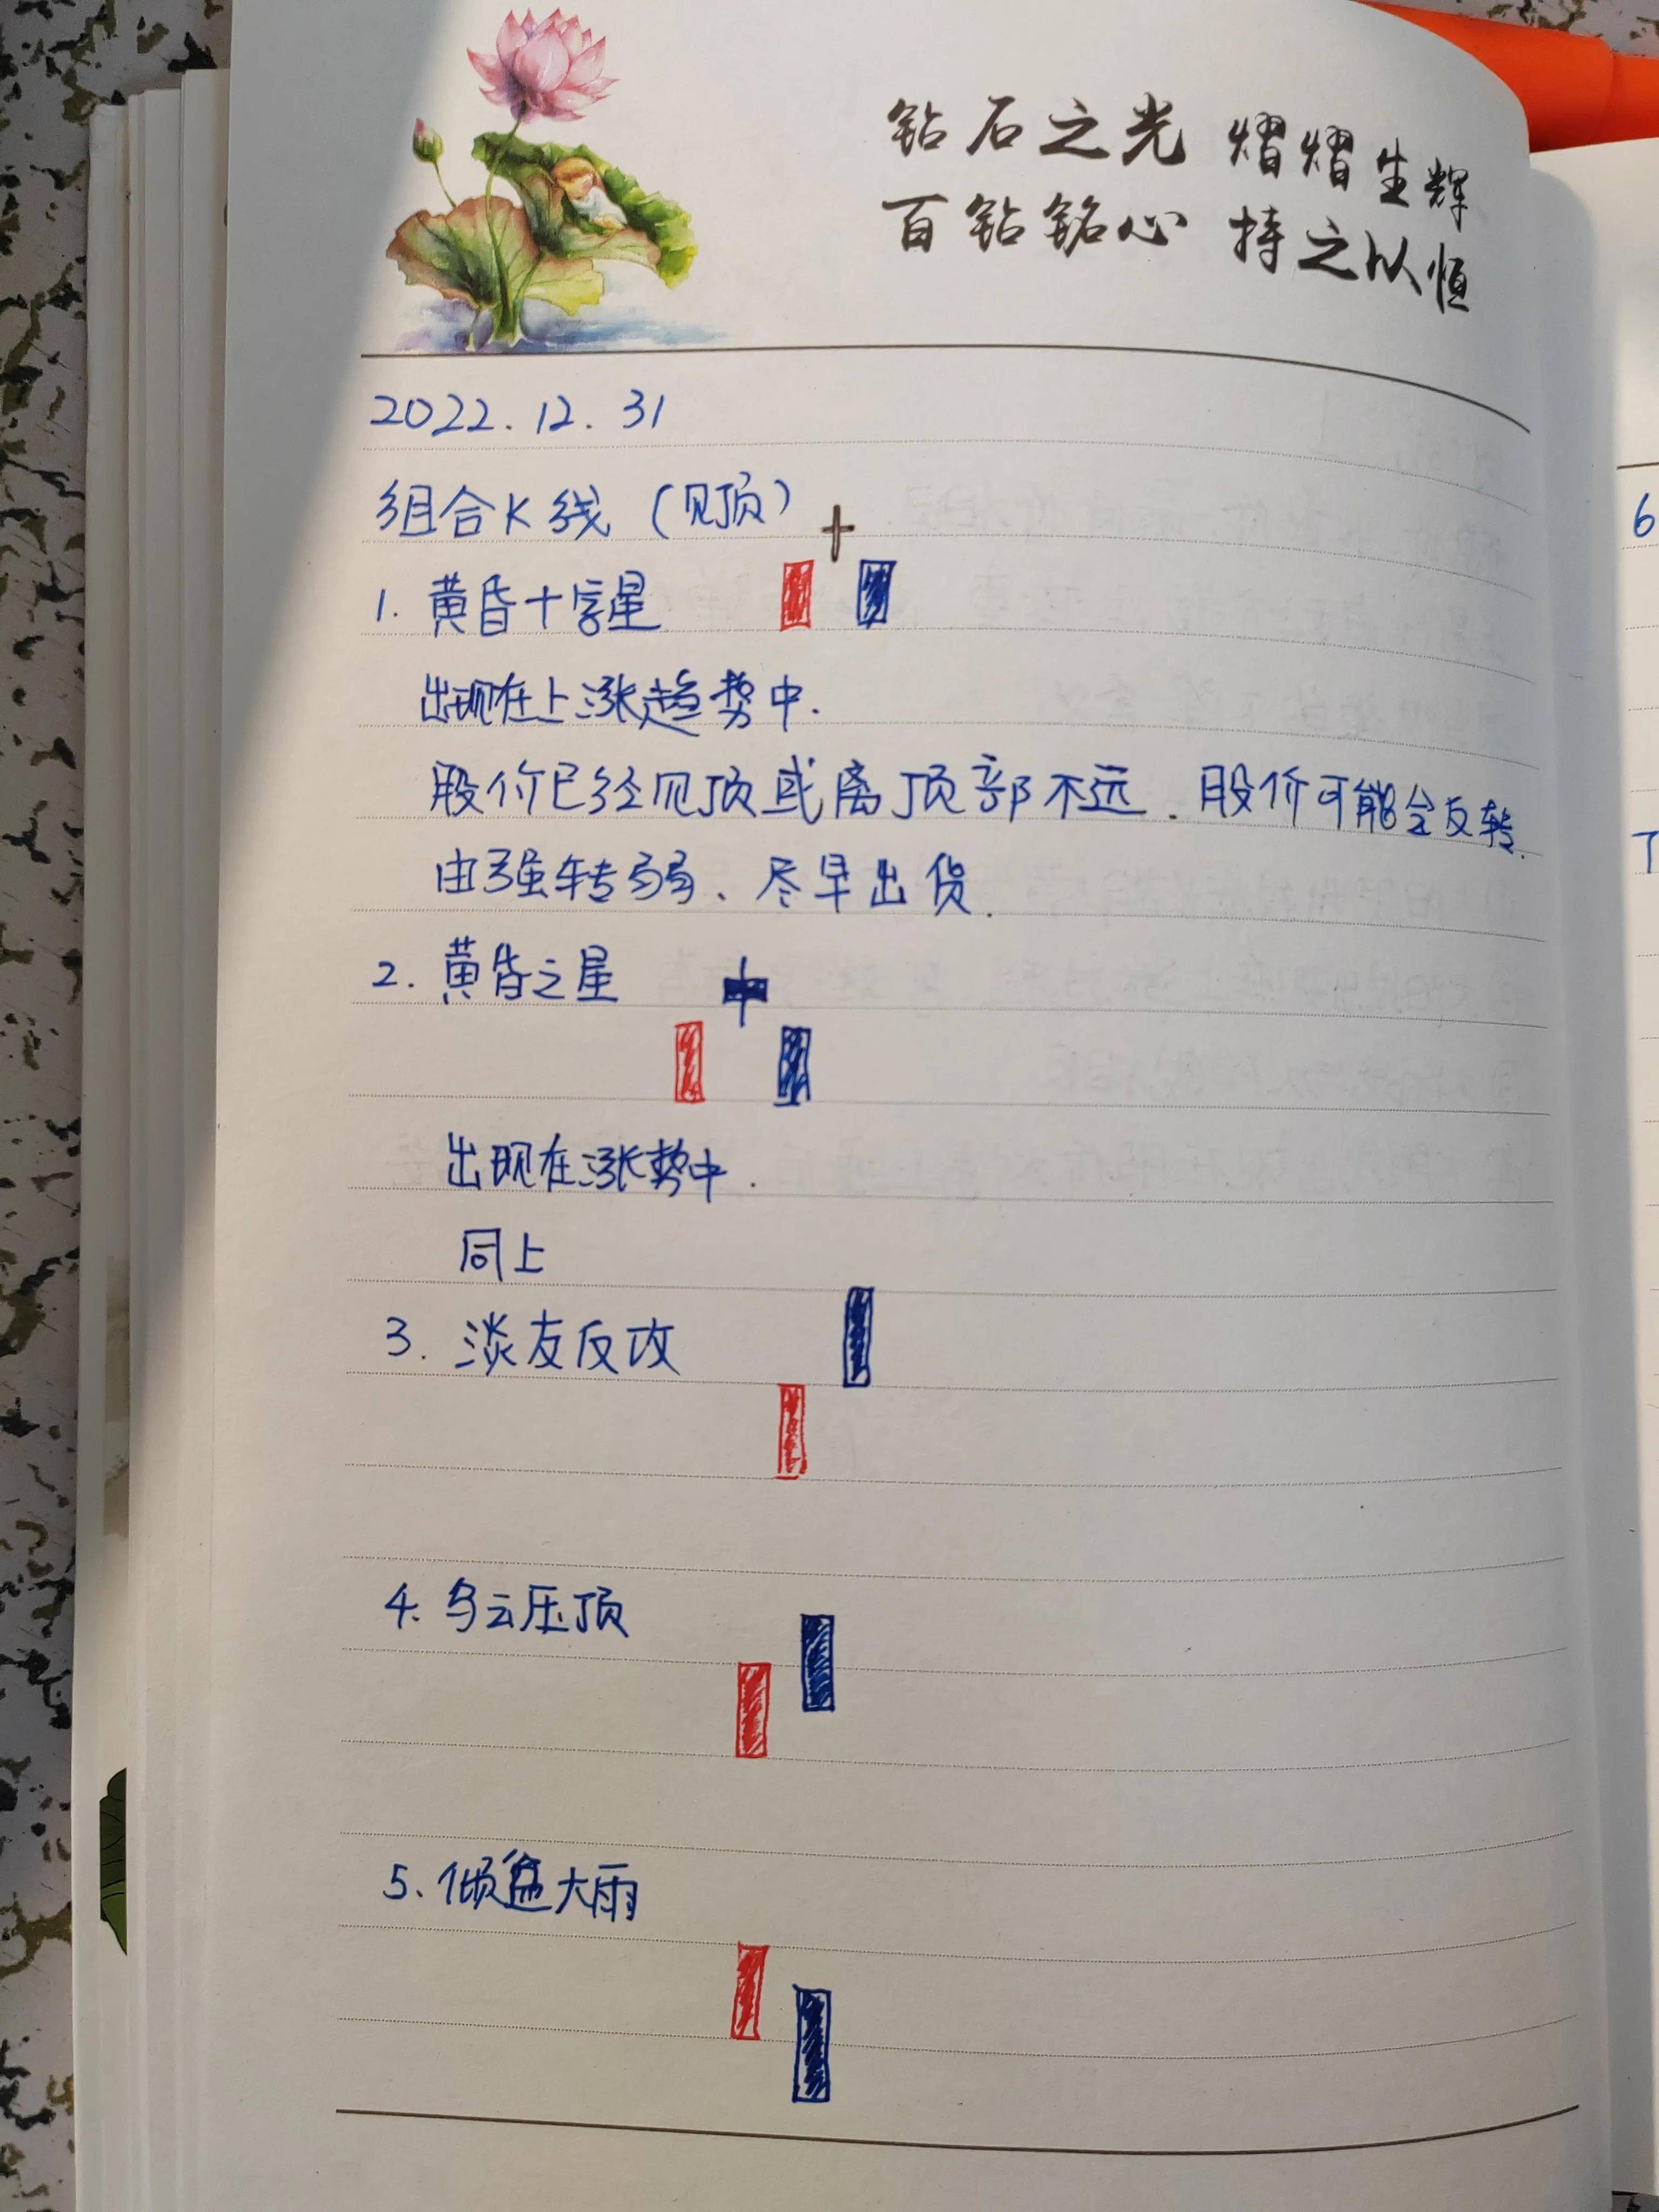 钻石之光 熠熠生辉
百钻铭心 持之以恒
2022.12.31
组合K线（见顶）
1. 黄昏十字星
出现在上涨趋势中.
股价已经见顶或离顶部不远. 股价可能会反转.
由强转弱、尽早出货.
2. 黄昏之星
出现在涨势中.
同上
3. 淡友反攻
4. 乌云压顶
5、倾盆大雨
6